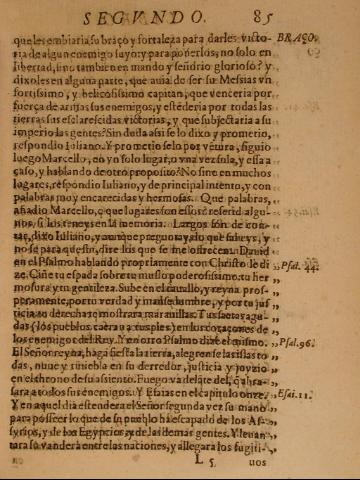 SEGVNDO. 85
que les embiaria su braço y fortaleza para darles victo- BRAÇO.
ria de algun enemigo suyo: y para ponerlos, no solo en
libertad, sino tambien en mando y señorio glorioso? y
dixoles en alguna parte, que auia de ser su Messias vn
fortissimo, y belicosissimo capitan, que venceria por
fuerça de armas sus enemigos, y estēderia por todas las
tierras sus esclarecidas victorias, y que subjectaria a su
imperio las gentes? Sin duda assi se lo dixo y prometio,
respondio Iuliano. Y prometioselo por vētura, siguio
luego Marcello, en vn solo lugar, o vna vez sola, y essa a
caso, y hablando de otro proposito? No sino en muchos
lugares, respōdio Iuliano, y de principal intento, y con
palabras muy encarecidas y hermosas. Que palabras,
añadio Marcello, o que lugares son essos? referid algu-
nos, si los teneys en la memoria. Largos son de con-
tar, dixo Iuliano, y aunque preguntays lo que sabeys, y
no se para que fin, dire los que se me ofrecen. Dauid
en el Psalmo hablando propriamente con Christo le di „ Psal. 44.
ze. Ciñe tu espada sobre tu muslo poderosissimo: tu her „
mosura y tu gentileza. Sube en el cauallo, y reyna pros- „
peramente, por tu verdad y mansedumbre, y por tu jus „
ticia: tu derecha te mostrara marauillas. Tus saetas agu- „
das (los pueblos caeran a tus pies) en los coraçones de „
los enemigos del Rey. Y en otro Psalmo dize el mismo. „ Psal. 96.
El Señor reyna, haga fiesta la tierra, alegrense las islas to „
das, nuue y tiniebla en su derredor, justicia y joyzio „
en el throno de su assiento. Fuego va delāte del, q̄ abra- „
sara a todos sus enemigos. Y Esaias en el capitulo onze. „ Esai. 11.
Y en aquel dia estendera el Señor segunda vez su mano „
para posseer lo que de su pueblo ha escapado de los As- „
syrios, y de los Egypcios, y de las demas gentes. Y leuan „
tara su vandera entre las naciones, y allegara los fugiti- „
L 5. uos